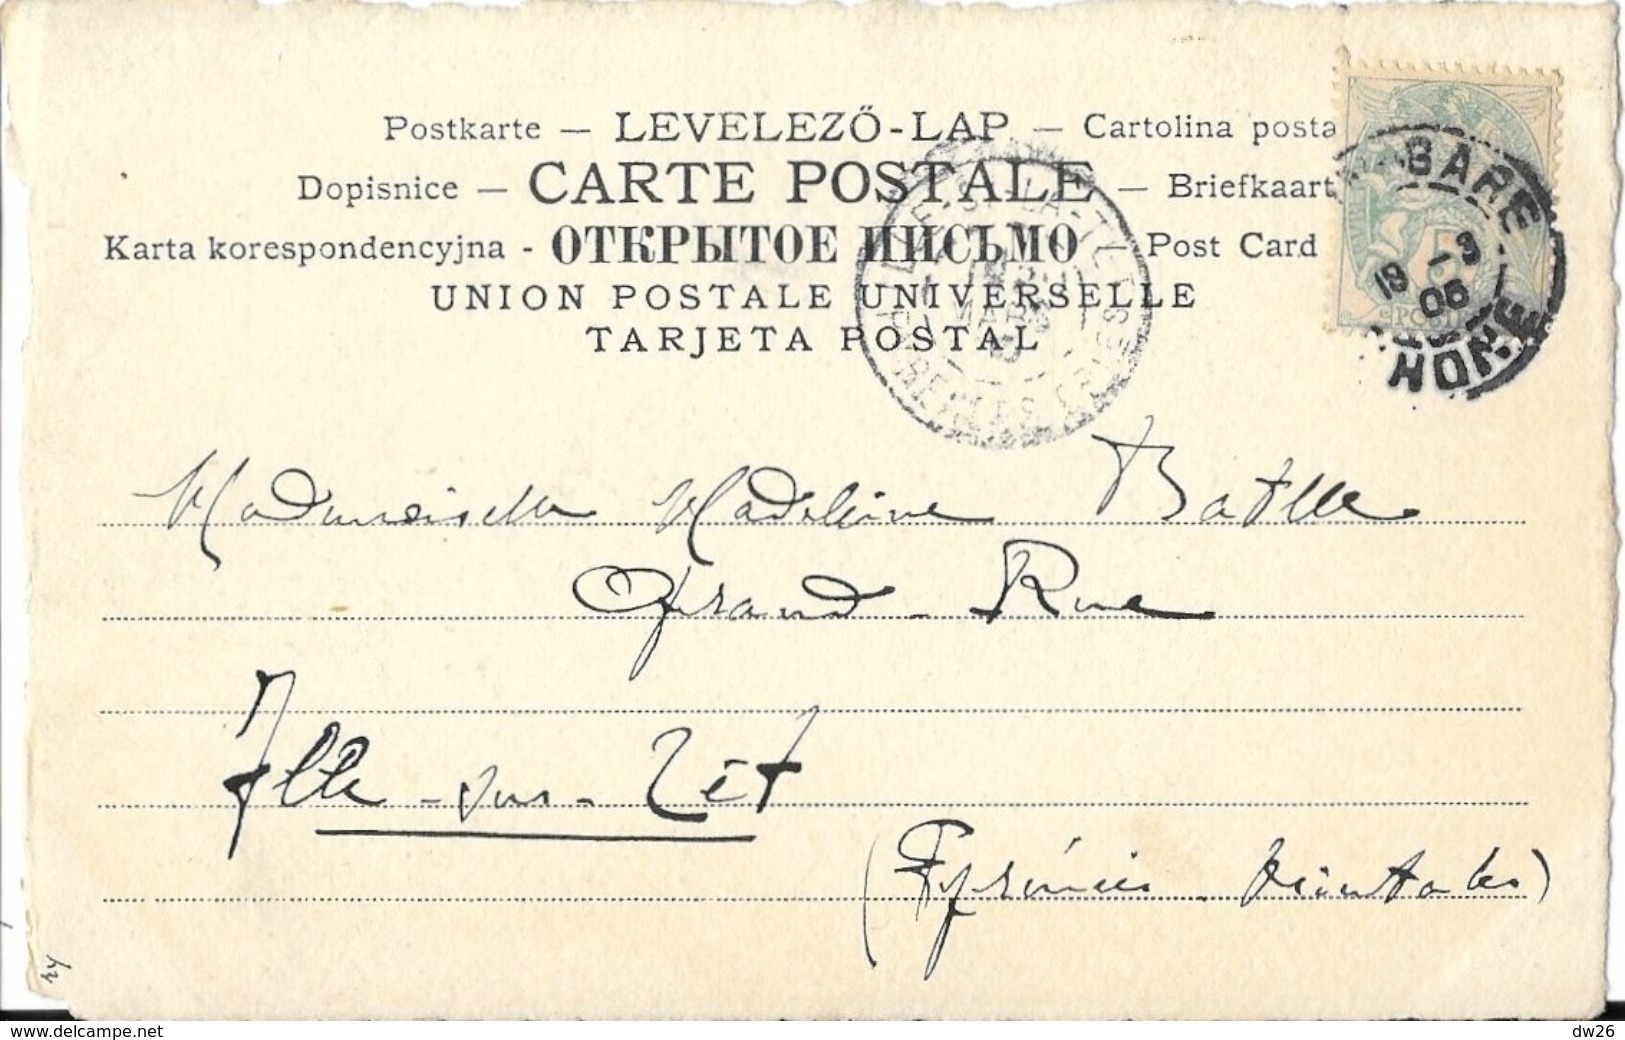 Postkarte — LEVELEZŐ-LAP — Cartolina posta
Dopisnice — CARTE POSTALE — Briefkaart
Karta korespondencyjna - ОТКРЫТОЕ ПИСЬМО Post Card
UNION POSTALE UNIVERSELLE
TARJETA POSTAL
BARE
18 -3
06
Mademoiselle Madeleine Batlle
Grand-Rue
Ille-sur-Têt
(Pyrénées-Orientales)
www.delcampe.net
dw26